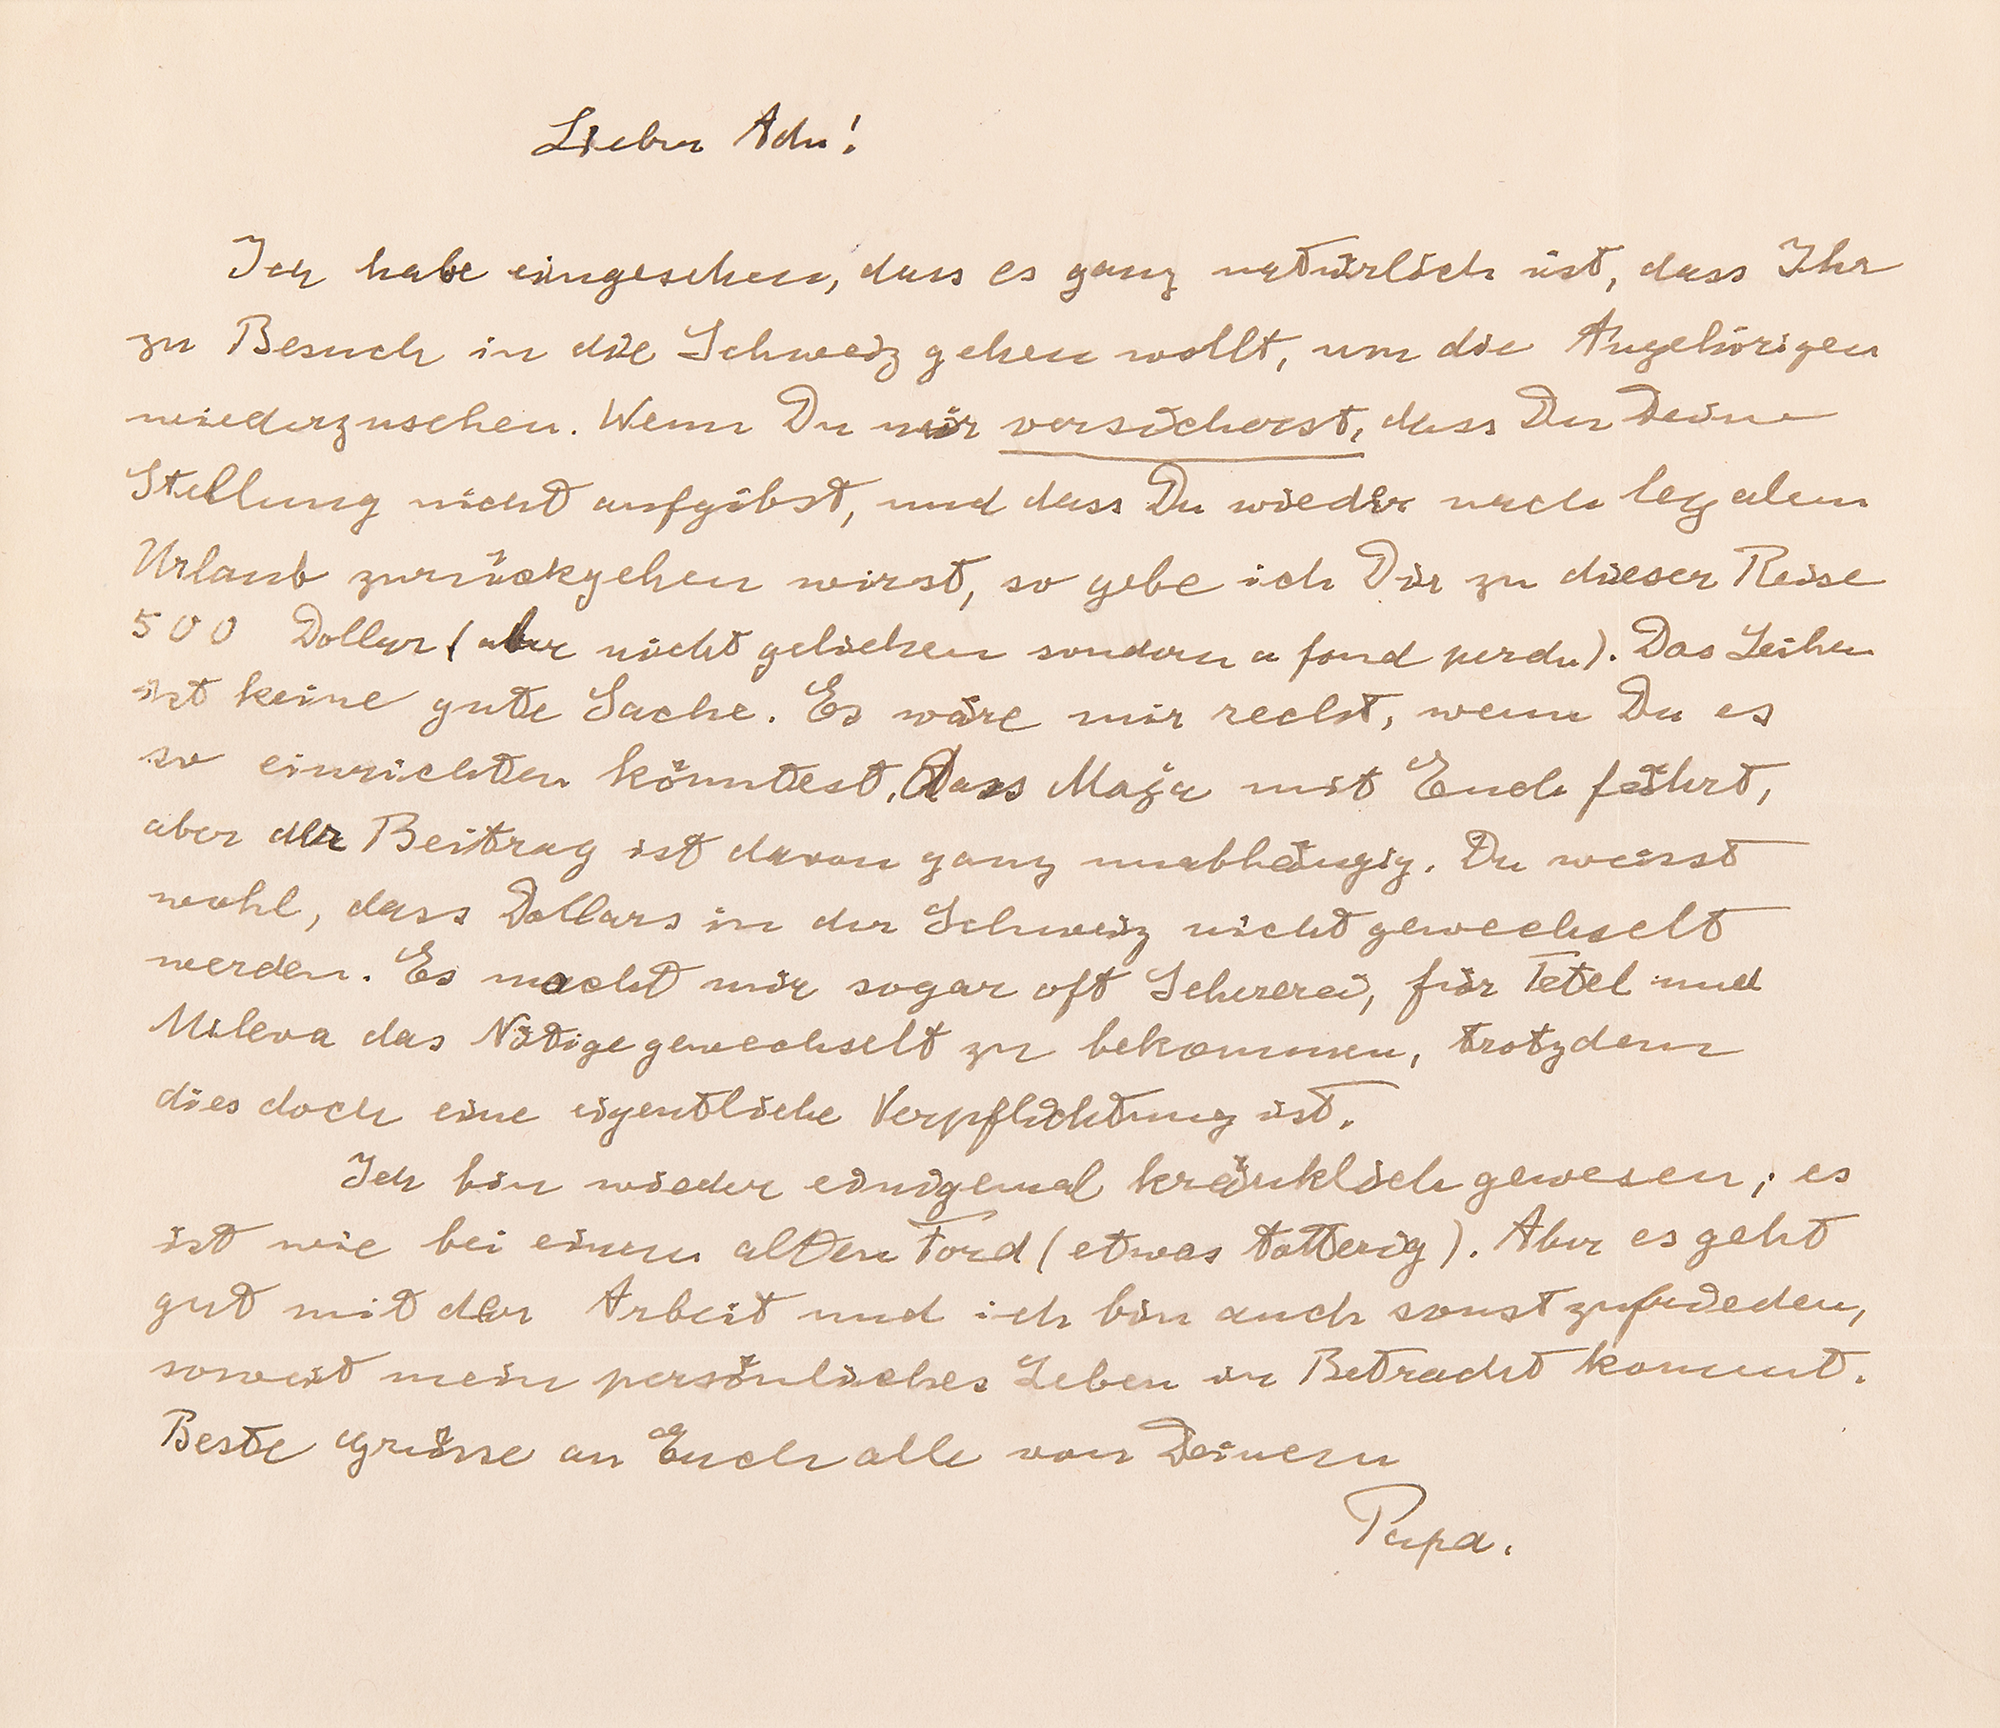 Lieber Adn!
Ich habe eingesehen, dass es ganz natürlich ist, dass Ihr
zu Besuch in die Schweiz gehen wollt, um die Angehörigen
wiederzusehen. Wenn Du mir versicherst, dass Du Deine
Stellung nicht aufgibst, und dass Du wieder nach legalem
Urlaub zurückgehen wirst, so gebe ich Dir zu dieser Reise
500 Dollar (aber nicht geliehen sondern a fond perdu). Das Leihen
ist keine gute Sache. Es wäre mir recht, wenn Du es
so einrichten könntest, dass Maja mit Euch fährt,
aber der Beitrag ist davon ganz unabhängig. Du weisst
wohl, dass Dollars in der Schweiz nicht gewechselt
werden. Es macht mir sogar oft Schererei, für Tetel und
Mileva das Nötige gewechselt zu bekommen, trotzdem
dies doch eine eigentliche Verpflichtung ist.
Ich bin wieder einigemal kränklich gewesen; es
ist wie bei einem alten Ford (etwas tatterig). Aber es geht
gut mit der Arbeit und ich bin auch sonst zufrieden,
soweit mein persönliches Leben in Betracht kommt.
Beste Grüsse an Euch alle von Deinem
Papa.